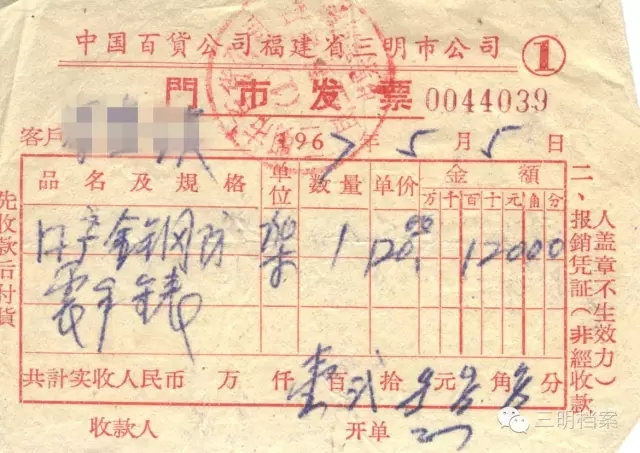 中国百貨公司福建省三明市公司 ①
門市发票 0044039
客戶 1967年5月5日
品名及規格 單位 数量 单价 金額
万千百十元角分
日产全钢防 架 1 120.00 12000
震手錶
共計实收人民币 万 仟壹百弍拾零元零角零分
收款人 开单
二、报銷凭証(非經收款
人盖章不生效力)
先收款后付貨
三明档案